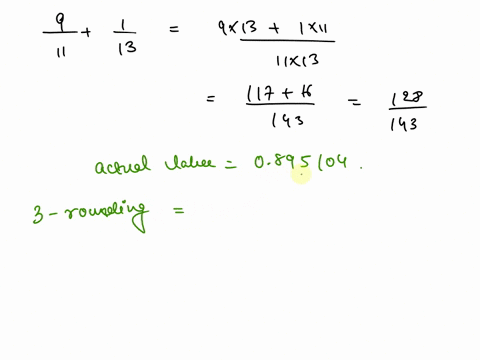 9/11 + 1/13 = 9×13 + 1×11 / 11×13
= 117 + 16 / 143 = 128 / 143
actual value = 0.895104.
3-rounding =